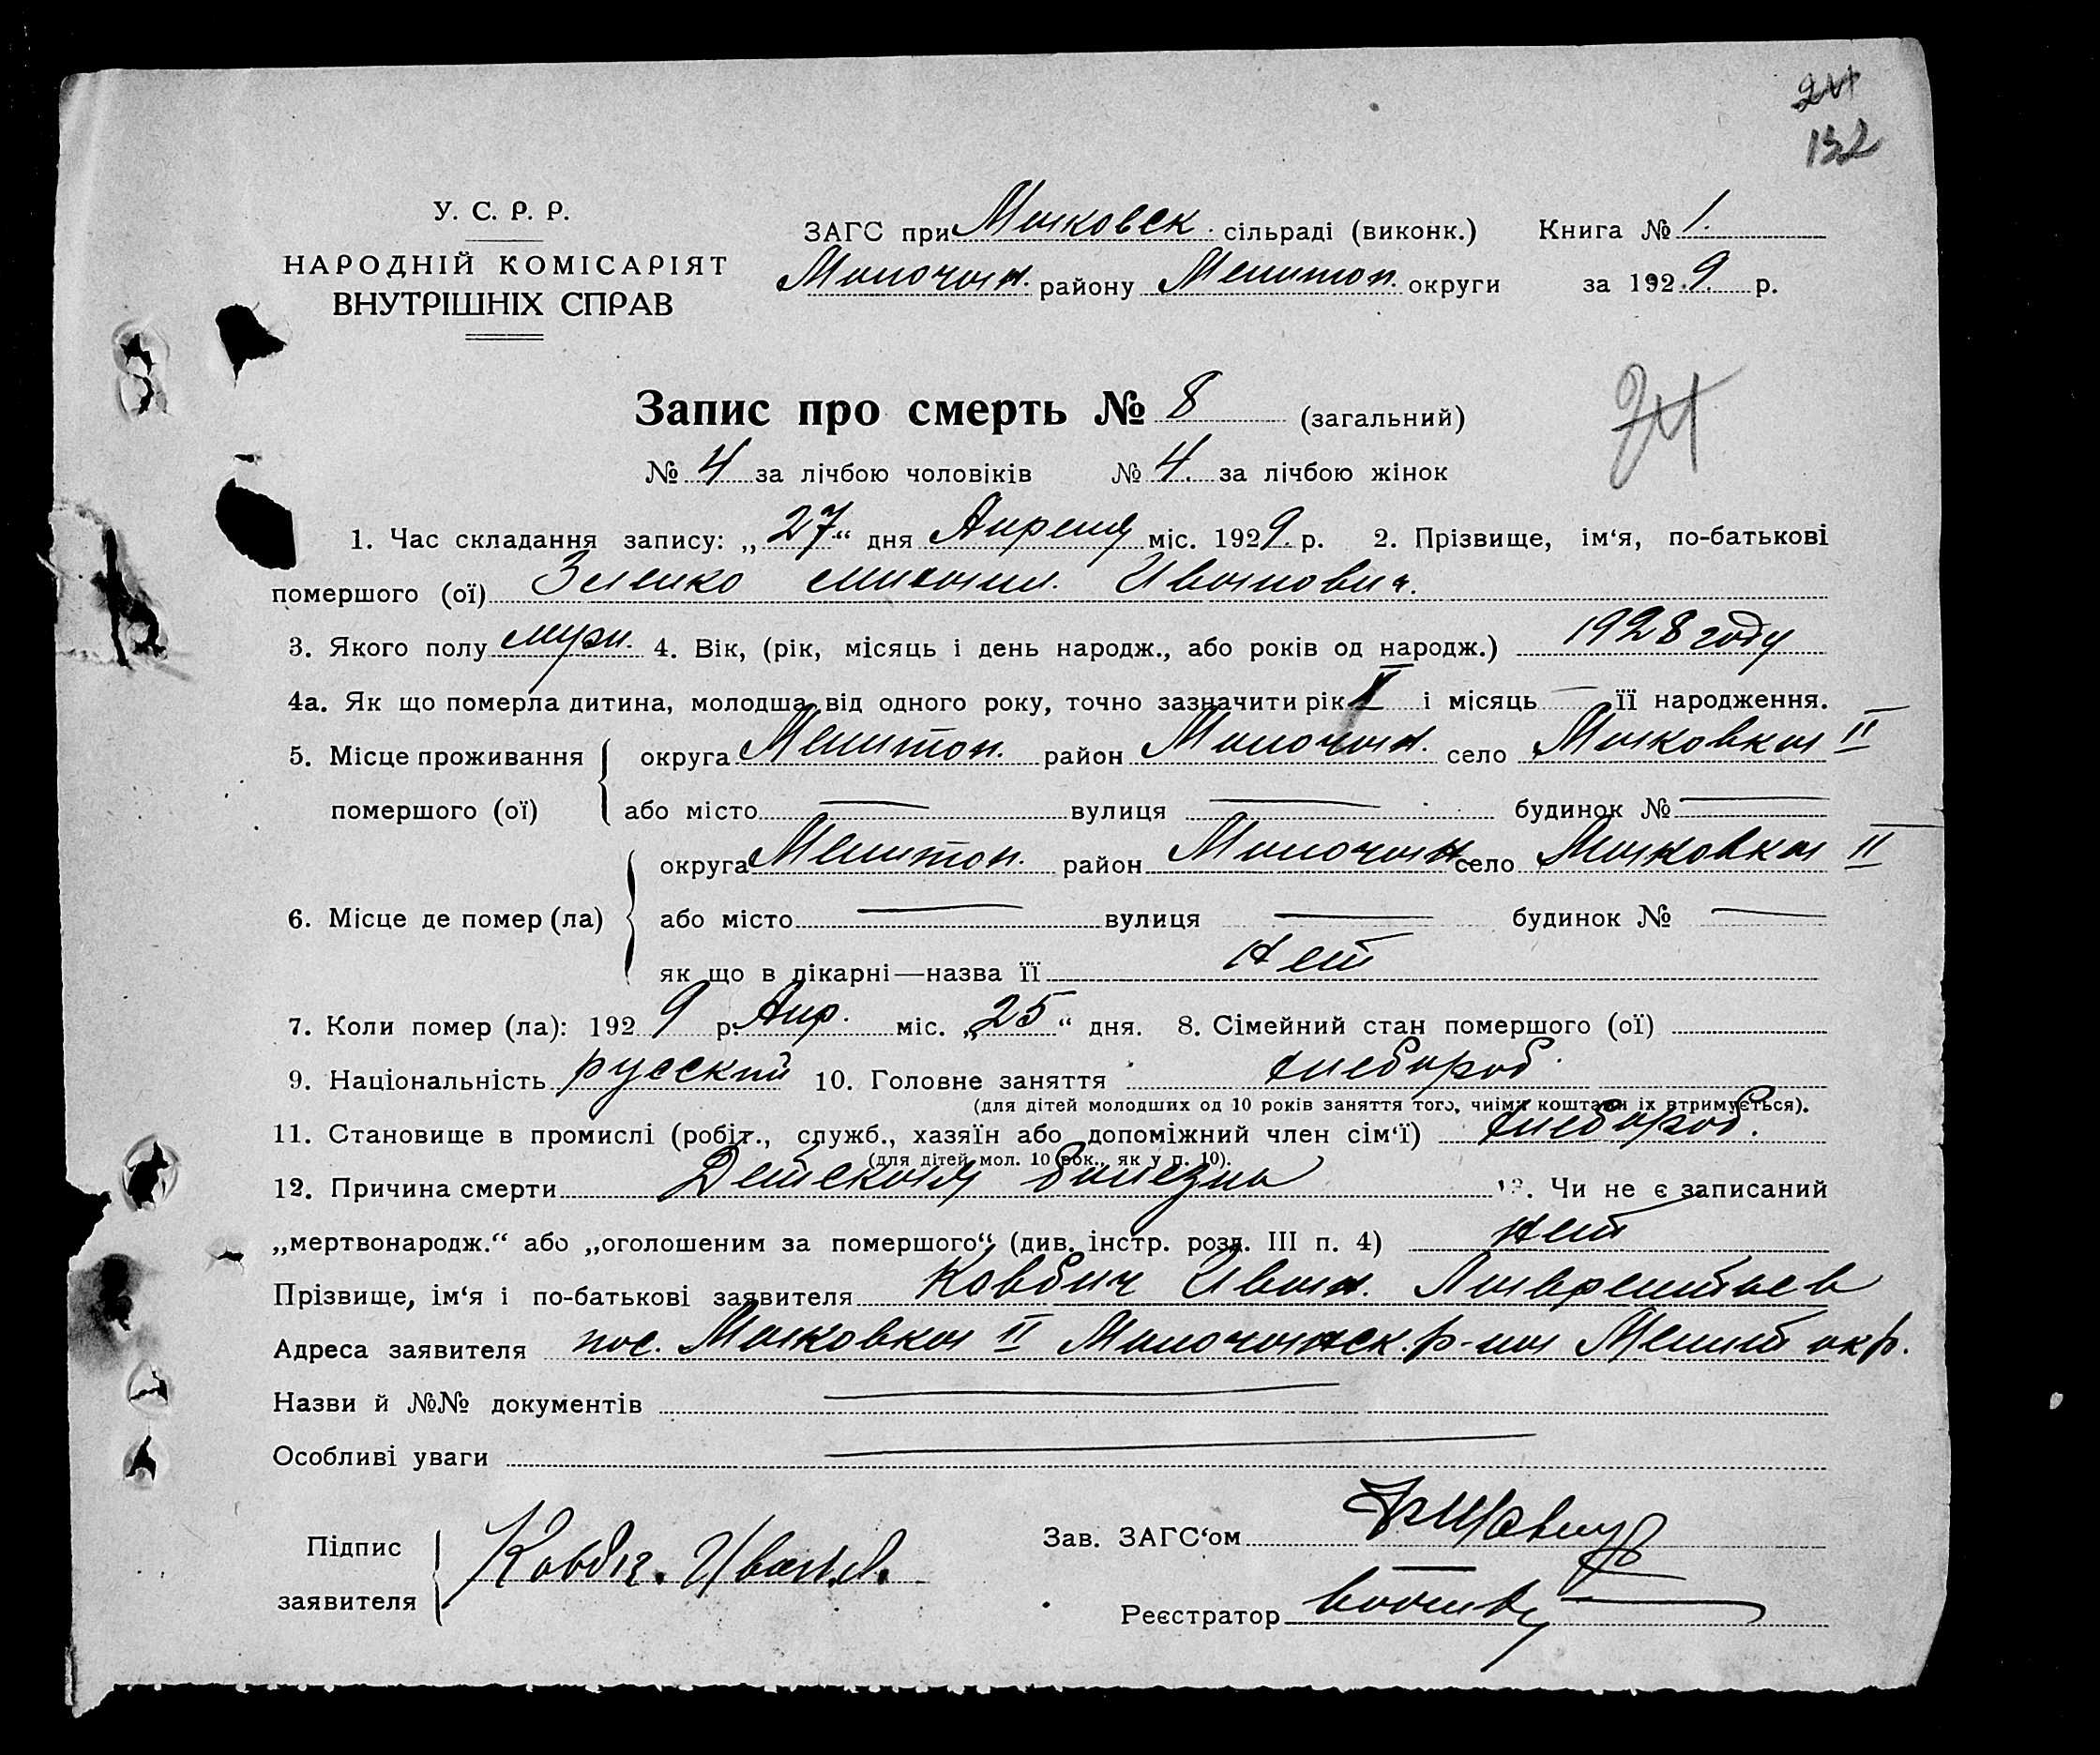 24
132
У. С. Р. Р.
НАРОДНІЙ КОМІСАРІЯТ
ВНУТРІШНІХ СПРАВ
ЗАГС при Маковск. сільраді (виконк.) Книга № 1.
Молочан. району Мелитоп. округи за 1929 р.
Запис про смерть № 8 (загальний)
24
№ 4 за лічбою чоловіків № 4. за лічбою жінок
1. Час складання запису: „27“ дня Апреля міс. 1929. р. 2. Прізвище, ім‘я, по-батькові
помершого (ої) Зленко Михаил. Иванович.
3. Якого полу муж. 4. Вік, (рік, місяць і день народж., або років од народж.) 1928 году
4а. Як що померла дитина, молодша від одного року, точно зазначити рік I і місяць — її народження.
5. Місце проживання округа Мелитоп. район Молочан. село Маковка II
помершого (ої) або місто — вулиця — будинок № —
округа Мелитоп. район Молочан село Маковка II
6. Місце де помер (ла) або місто — вулиця — будинок № —
як що в лікарні—назва її нет
7. Коли помер (ла): 1929 р. Апр. міс. „25“ дня. 8. Сімейний стан помершого (ої)
9. Національність русский 10. Головне заняття хлебороб
(для дітей молодших од 10 років заняття того, чиїми коштами їх втримується).
11. Становище в промислі (робіт., служб., хазяїн або допоміжний член сім‘ї) хлебороб.
(для дітей мол. 10 рок., як у п. 10).
12. Причина смерти Детская болезнь 13. Чи не є записаний
„мертвонародж.“ або „оголошеним за помершого“ (див. інстр. розд. III п. 4) нет
Прізвище, ім‘я і по-батькові заявителя Иван. Лаврентьев
Адреса заявителя пос. Маковка II Молочанск. р-на Мелит окр.
Назви й №№ документів —
Особливі уваги —
Підпис
заявителя Иван. Л.
Зав. ЗАГС‘ом
Реєстратор